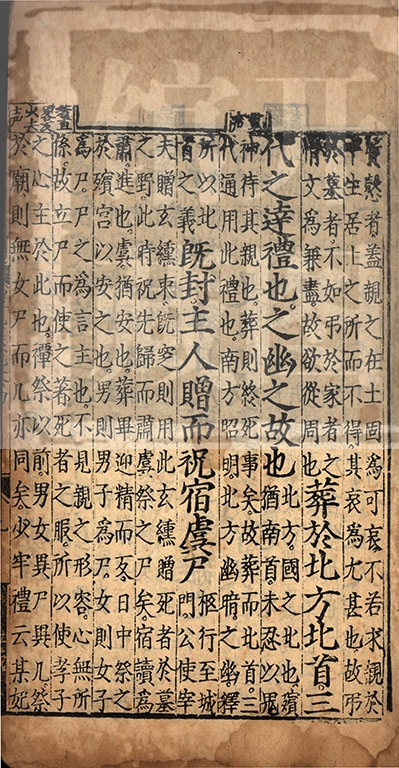 質慤者。蓋親之在土固爲可哀。不若求親於
平生居止之所而不得。其哀爲尤甚也。故弔
於墓者。不如弔於家者之
情文爲兼盡。故欲從周也
葬於北方北首。三
代之達禮也。之幽之故也
北方。國之北也。殯
猶南首。未忍以鬼
神待其親也。葬則終死事矣。故葬而北首。三
代通用此禮也。南方昭明。北方幽暗。之幽釋
所以北
首之義
既封主人贈而祝宿虞尸
柩行至城
門。公使宰
夫贈玄纁束。旣窆則用此玄纁贈死者於墓
之野。此時祝先歸而肅虞祭之尸矣。宿讀爲
肅。進也。虞。猶安也。葬畢迎精而反。日中祭之
於殯宮以安之也。男則男子爲尸。女則女子
爲尸。尸之爲言主也。不見親之形容。心無所
係。故立尸而使之著死者之服。所以使孝子
之心主於此也。禫祭以前男女異尸異几。祭
於廟則無女尸而几亦同矣。少牢禮云某妃